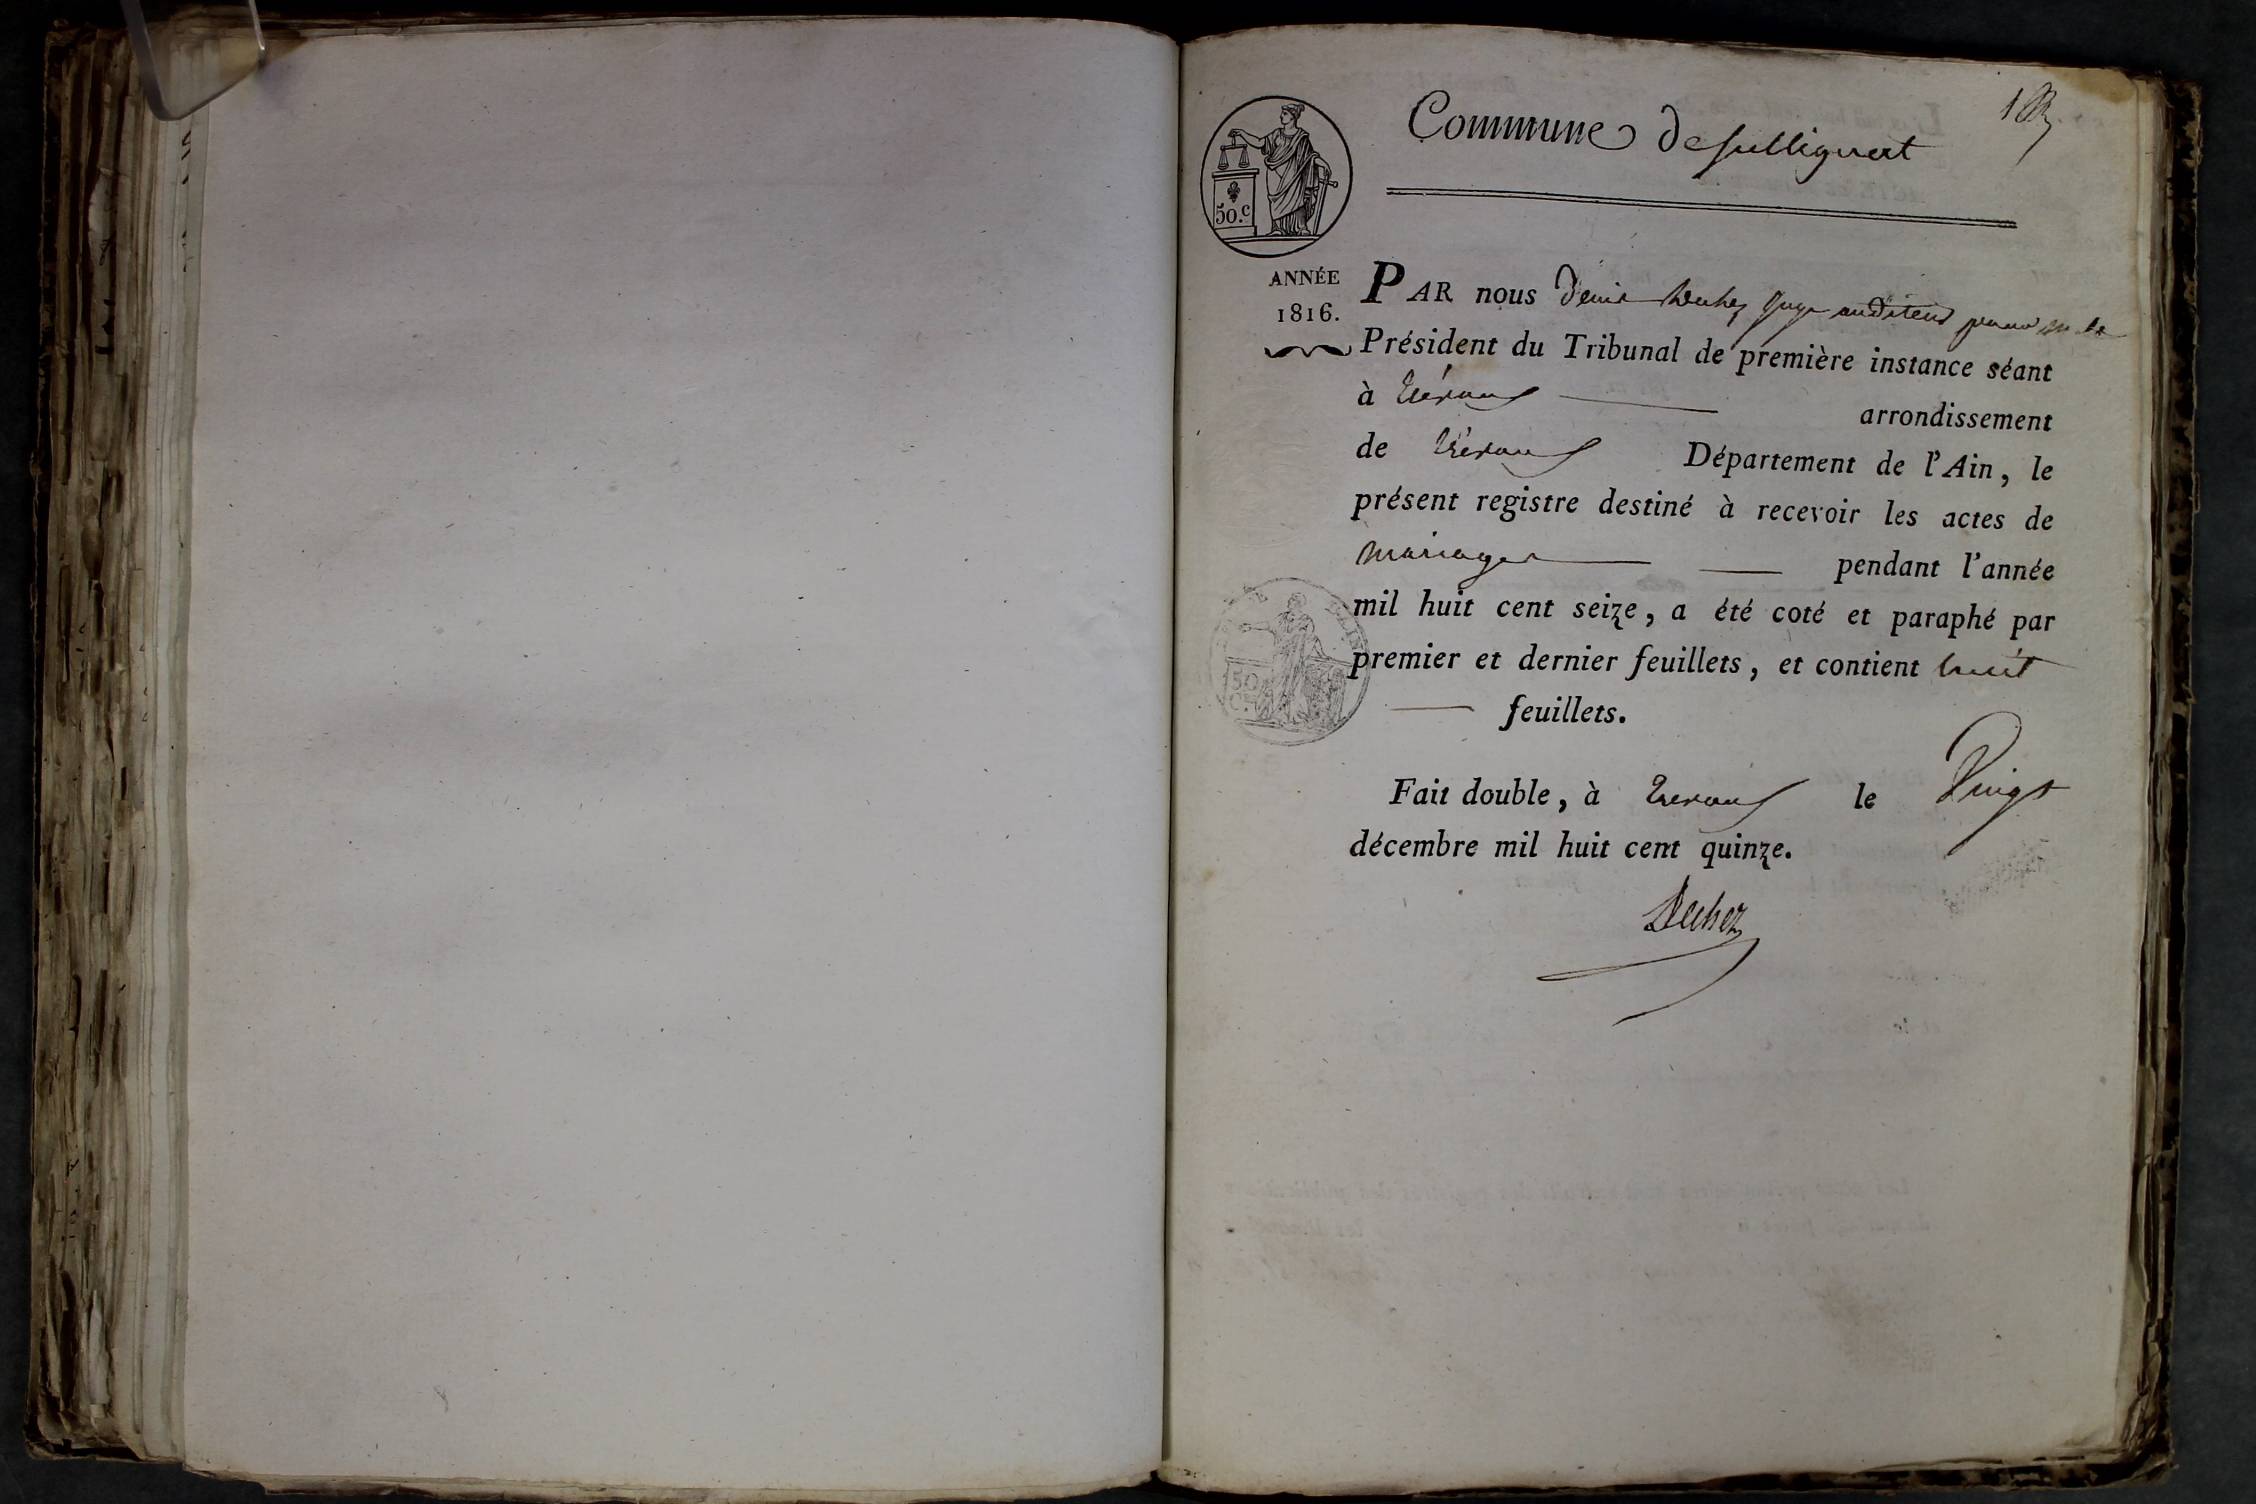 Commune de sulligniat
1
50.c
ANNÉE
1816.
PAR nous Denis Dechez Juge auditeur pour M. le
Président du Tribunal de première instance séant
à Trévoux arrondissement
de Trévoux Département de l'Ain, le
présent registre destiné à recevoir les actes de
mariages pendant l'année
mil huit cent seize, a été coté et paraphé par
premier et dernier feuillets, et contient huit
feuillets.
50
C.
Fait double, à Trevoux le Vingt
décembre mil huit cent quinze.
Dechez